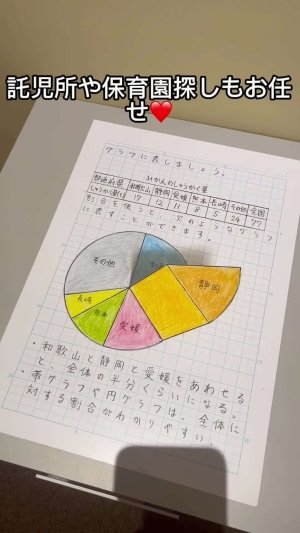 託児所や保育園探しもお任
せ❤️
グラフに表しましょう。
みかんのしゅうかく量
都道府県 和歌山 静岡 愛媛 熊本 長崎 その他 全国
17 12 11 8 5 24 77
割合を使うと、次のようなグラフ
に表すことができます。
その他
静岡
長崎
熊本
愛媛
・和歌山と静岡と愛媛をあわせる
と、全体の半分くらいになる。
・帯グラフや円グラフは、全体に
対する割合がわかりやすい。